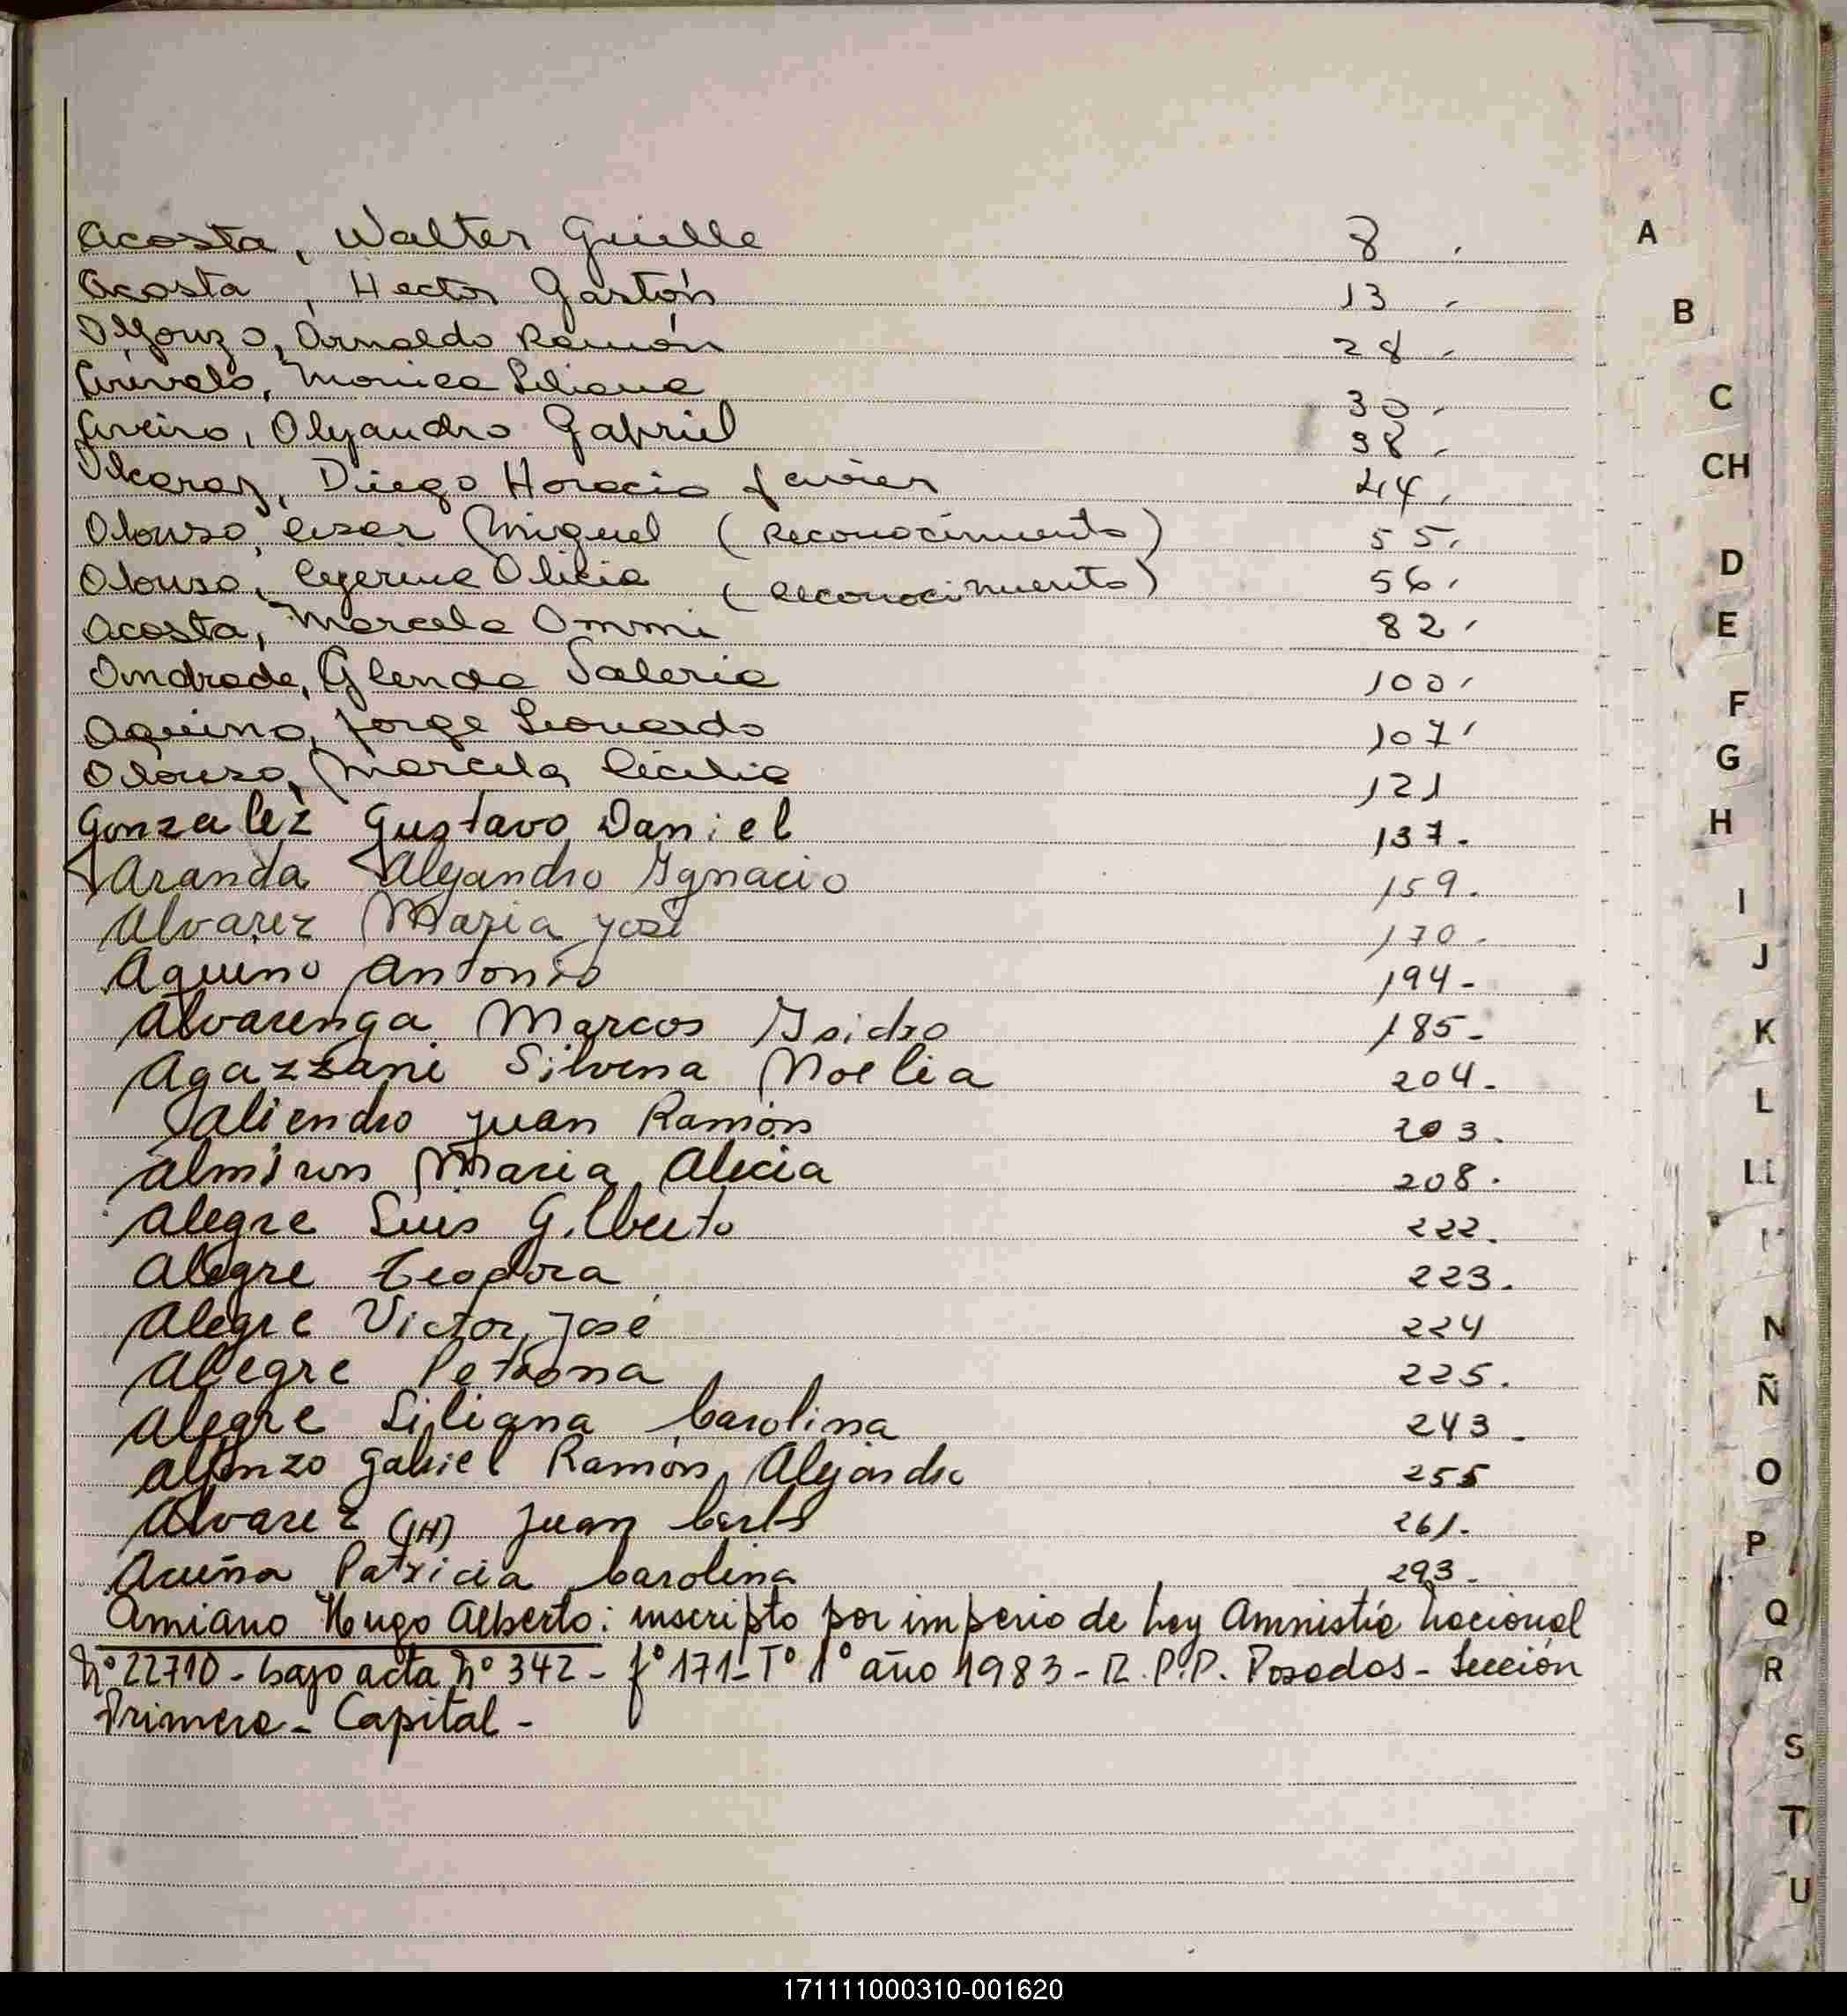 Acosta, Walter Guille 8
Acosta, Hector Gastón 13
Alfonzo, Arnaldo Ramón 28
Arévalo, Monica Liliana 30
Areiro, Alejandro Gabriel 38
Alcaraz, Diego Horacio Javier 44
Alonso, Cesar Miguel (Reconocimiento) 55
Alonso, Alicia (Reconocimiento) 56
Acosta, Marcela 82
Andrade, Glenda Valeria 100
Aquino, Jorge Leonardo 107
Alonso, Marcela Cecilia 121
Gonzalez Gustavo Daniel 137.
Aranda Alejandro Ygnacio 159.
Alvarez Maria José 170.
Aquino Antonio 194-
Alvarenga Marcos Ysidro 185-
Agazzani Silvina Noelia 204.
Aliendro Juan Ramón 203.
Almiron Maria Alicia 208.
Alegre Luis Gilberto 222.
Alegre Teodora 223.
Alegre Victor José 224
Alegre Petrona 225.
Alegre Liliana Carolina 243.
Alfonzo Gabriel Ramón Alejandro 255
Alvarez (IH) Juan Carlos 261.
Acuña Patricia Carolina 293.
Amiano Hugo Alberto: inscripto por imperio de Ley Amnistía Nacional
Nº 22710 - bajo acta Nº 342 - fº 171 - Tº 1º año 1983 - R.P.P. Posadas - Sección
Primera - Capital -
A
B
C
CH
D
E
F
G
H
I
J
K
L
LL
N
Ñ
O
P
Q
R
S
T
U
171111000310-001620